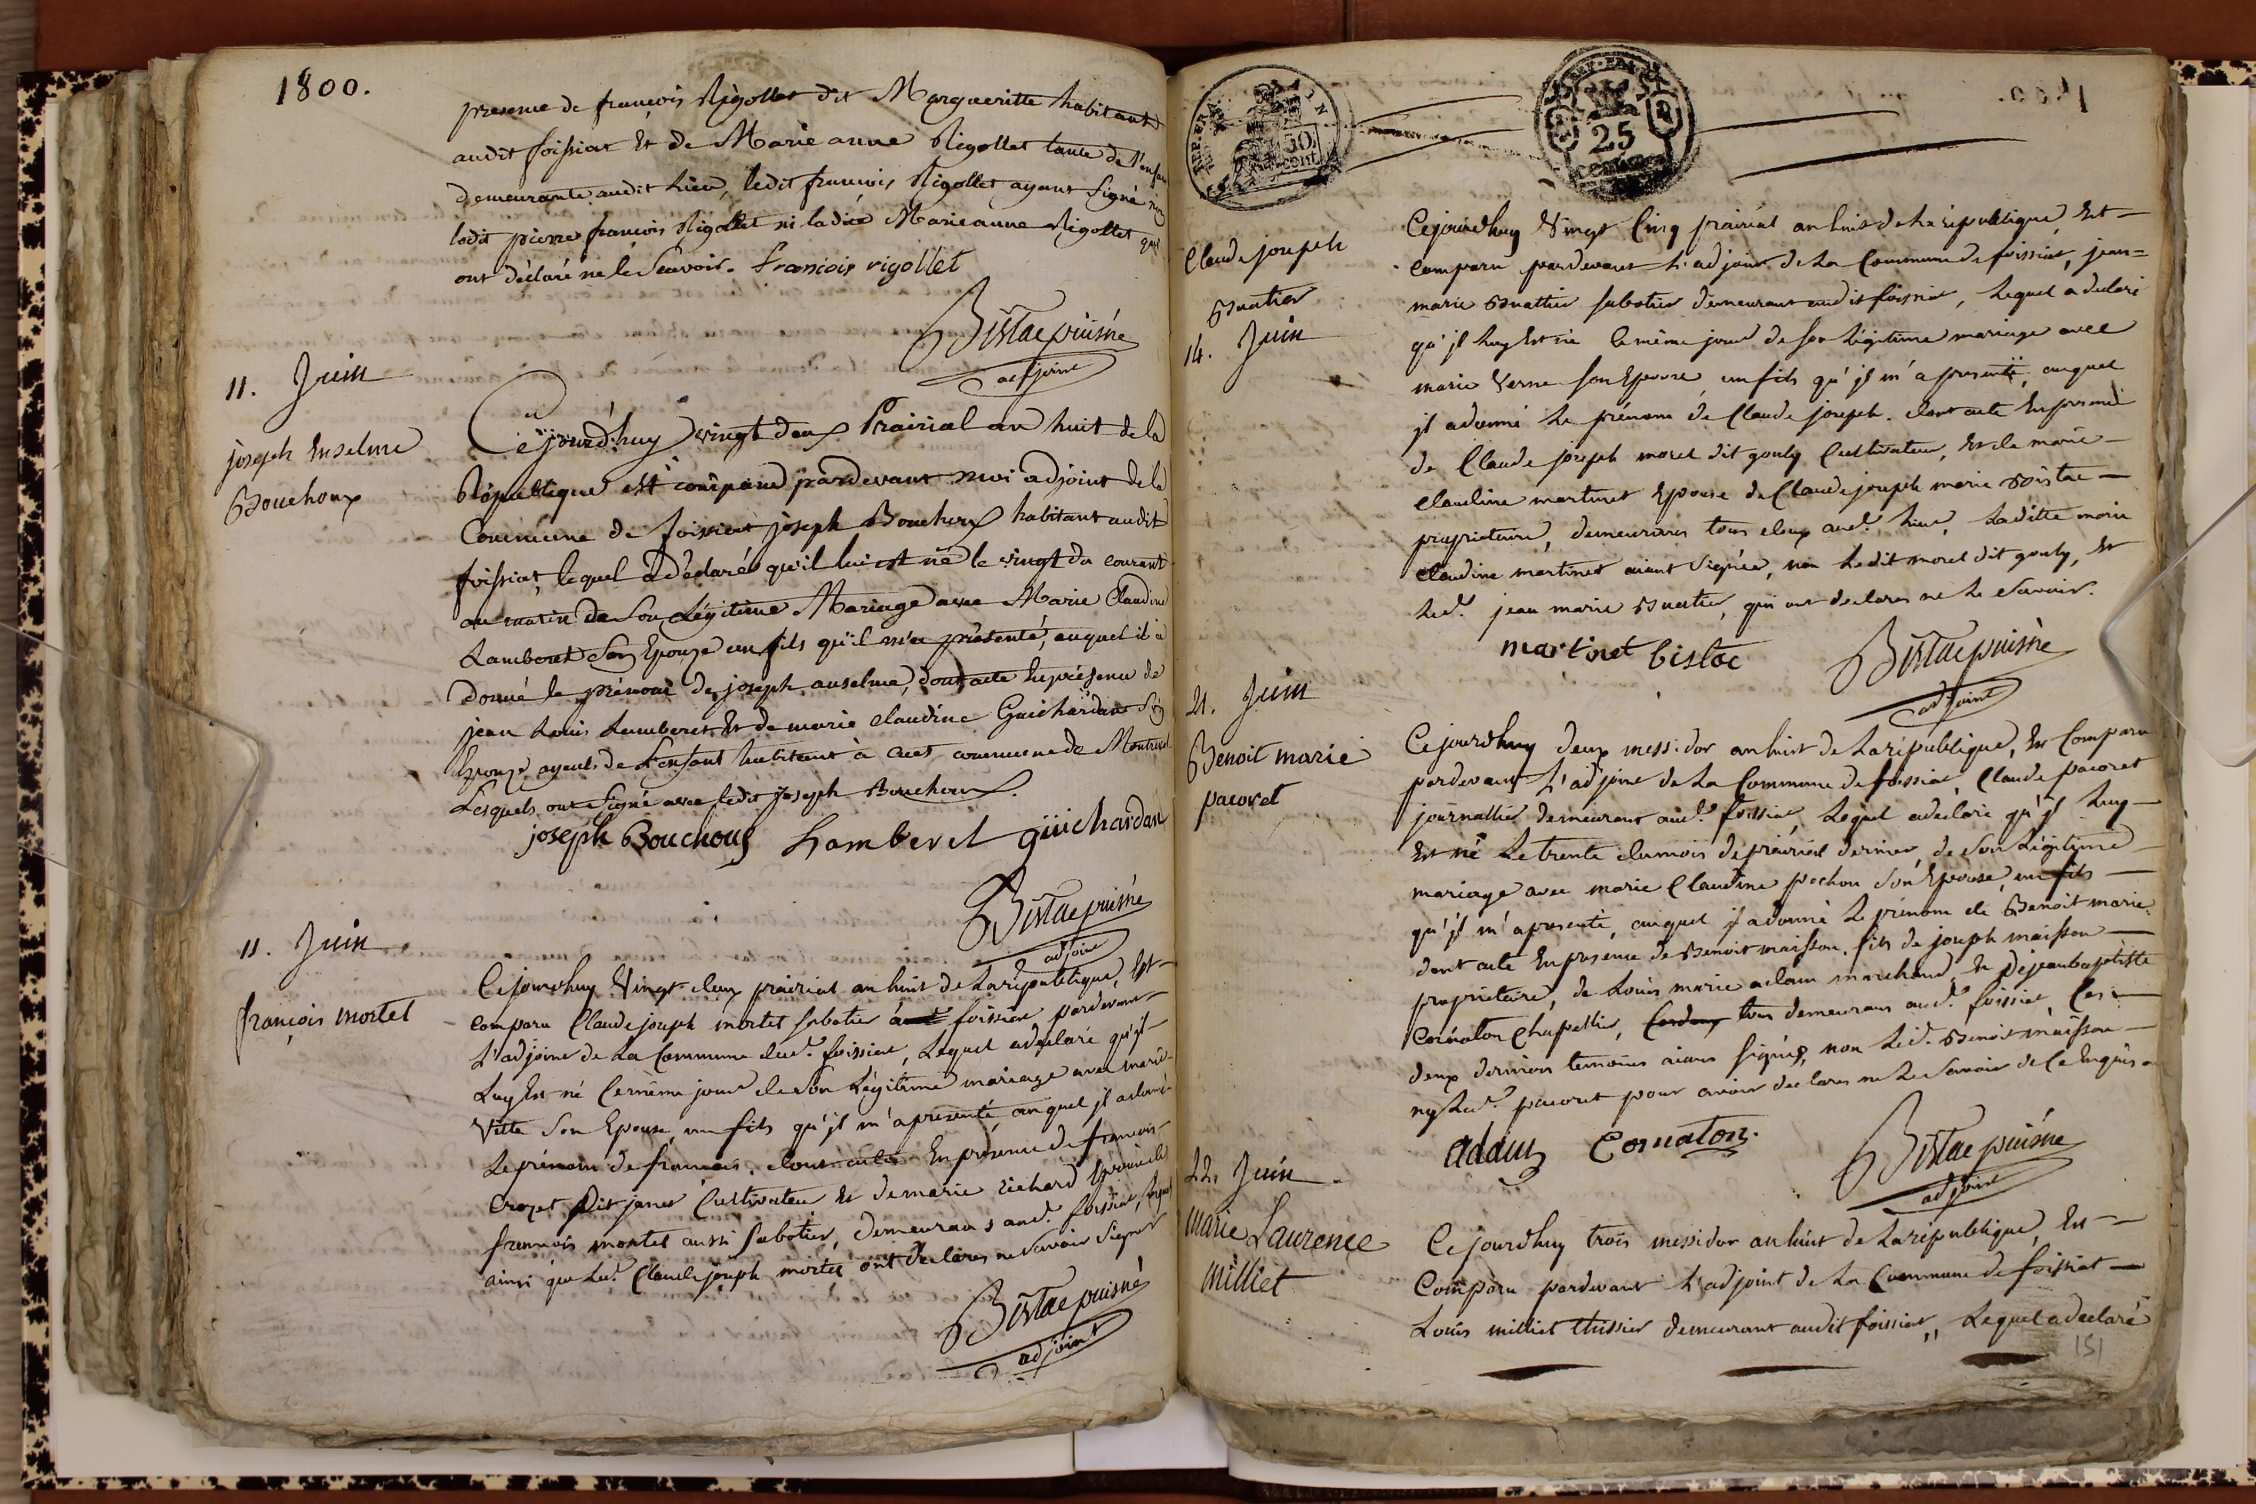 1800.
presence de francois Rigollet dit Margueritte habitant
audit foissiat Et de Marie anne Rigollet tante de l'enfant
demeurante audit Lieu, ledit francois Rigollet ayant signé non
ledit pierre francois Rigollet ni ladite Marie anne Rigollet qui
ont déclaré ne le Scavoir. francois rigollet
Bistac puisné
adjoint
11. Juin
joseph Enselme
Bouchoux
Cejourd'huy vingt deux Prairial an huit de la
République est comparu pardevant moi adjoint de la
Commune de foissiat joseph Bouchoux habitant audit
foissiat, lequel a déclaré qu'il lui est né le vingt du courant
au matin de Son Légitime Mariage avec Marie Claudine
Lamberet Son Epouze un fils qu'il m'a présenté, auquel il a
donné le prénom de joseph anselme, dont acte En présence de
jean Louis Lamberet Et de marie Claudine Guichardan Son
Epouze ayeuls de L'enfant habitant à cuet commune de Montrevel
Lesquels ont Signé avec ledit joseph Bouchoux.
joseph Bouchoux Lamberet guichardan
Bistac puisné
adjoint
11. Juin
françois mortet
Cejourdhuy Vingt deux prairial an huit de La république, Est
comparu Claude joseph mortet sabotier à foissiat pardevant
L'adjoint de La Commune dud. foissiat, Lequel a declaré qu'jl
Luy Est né Ce même jour de Son Légitime mariage avec marie
Vitte Son Epouse, un fils qu'jl m'a presenté, auquel jl a donné
Le prénom de francois. dont acte En presence de francois
Crozet dit janet Cultivateur Et de marie richard Epouse de
francois mortet aussi Sabotier, demeurans aud. foissiat, Lesquels
ainsi que Led. Claude joseph mortet ont declarés ne Savoir Signer
Bistac puisné
adjoint
30
cent
25
centimes
Claude joseph
Buattier
14. Juin
Cejourdhuy Vingt Cinq prairial an huit de La république, Est
Comparu pardevant L'adjoint de La Commune de foissiat, jean=
marie Buattier sabotier demeurant audit foissiat, Lequel a declaré
qu'jl Luy Est né Ce même jour de Son Légitime mariage avec
marie Verne Son Epouse, un fils qu'jl m'a presenté, auquel
jl a donné Le prénom de Claude joseph. dont acte En presence
de Claude joseph morel dit gouly Cultivateur, Et de marie
Claudine martinet Epouse de Claude joseph marie Bistac
propriétaire, demeurans tous deux aud. Lieu, Ladite marie
Claudine martinet aiant Signée, non Ledit morel dit gouly, Et
Led. jean marie Buattier, qui ont declarés ne Le Savoir.
martinet bistac
Bistac puisné
adjoint
21. Juin
Benoit marie
pacoret
Cejourdhuy deux messidor an huit de La république, Est Comparu
pardevant L'adjoint de La Commune de foissiat, Claude pacoret
journallier demeurant aud. foissiat, Lequel a declaré qu'jl Luy
Est né Le trente du mois de prairial dernier, de Son Légitime
mariage avec marie Claudine pochon Son Epouse, un fils
qu'jl m'a presenté, auquel jl a donné Le prénom de Benoit marie.
dont acte En presence de Benoit maisson fils de joseph maisson
propriétaire, de Louis marie adam marchand Et de jean baptiste
Cornaton Chapellier, tous demeurans aud. foissiat, Ces
deux derniers temoins aians Signés, non Led. Benoit maisson
ny Led. pacoret pour avoir declarés ne Le Savoir de Ce Enquis.
adam Cornaton.
Bistac puisné
adjoint
22. Juin
Marie Laurence
Milliet
Cejourdhuy trois messidor an huit de La république, Est
Comparu pardevant L'adjoint de La Commune de foissiat
Louis milliet thissier demeurant audit foissiat, Lequel a declaré
151